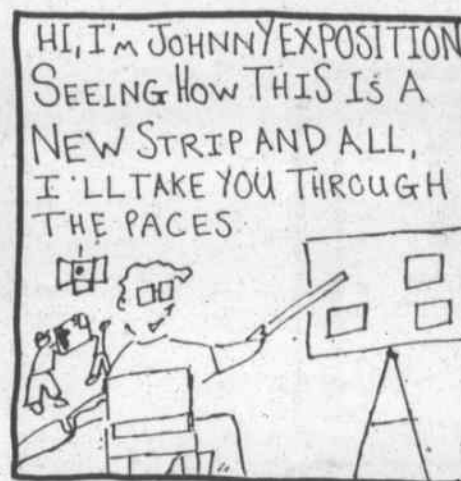 HI, I'M JOHNNY EXPOSITION
SEEING HOW THIS IS A
NEW STRIP AND ALL,
I'LL TAKE YOU THROUGH
THE PACES